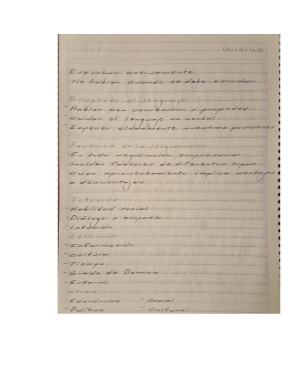 Escuchar activamente
No hablar cuando se debe escuchar
Respeto al lenguaje
- Hablar con corrección y propiedad
- Cuidar el lenguaje no verbal
- Exponer claramente nuestras posiciones
Factores de la negociación
En toda negociación empresarial
inciden factores de diferentes tipos
cuyo aprovechamiento implica ventajas
o desventajas
- Habilidad social
- Diálogo y empatía
- Intuición
- Información
- Cultura
- Tiempo
- Grado de Dominio
- Entorno
- Económico - Social
- Político - Cultural